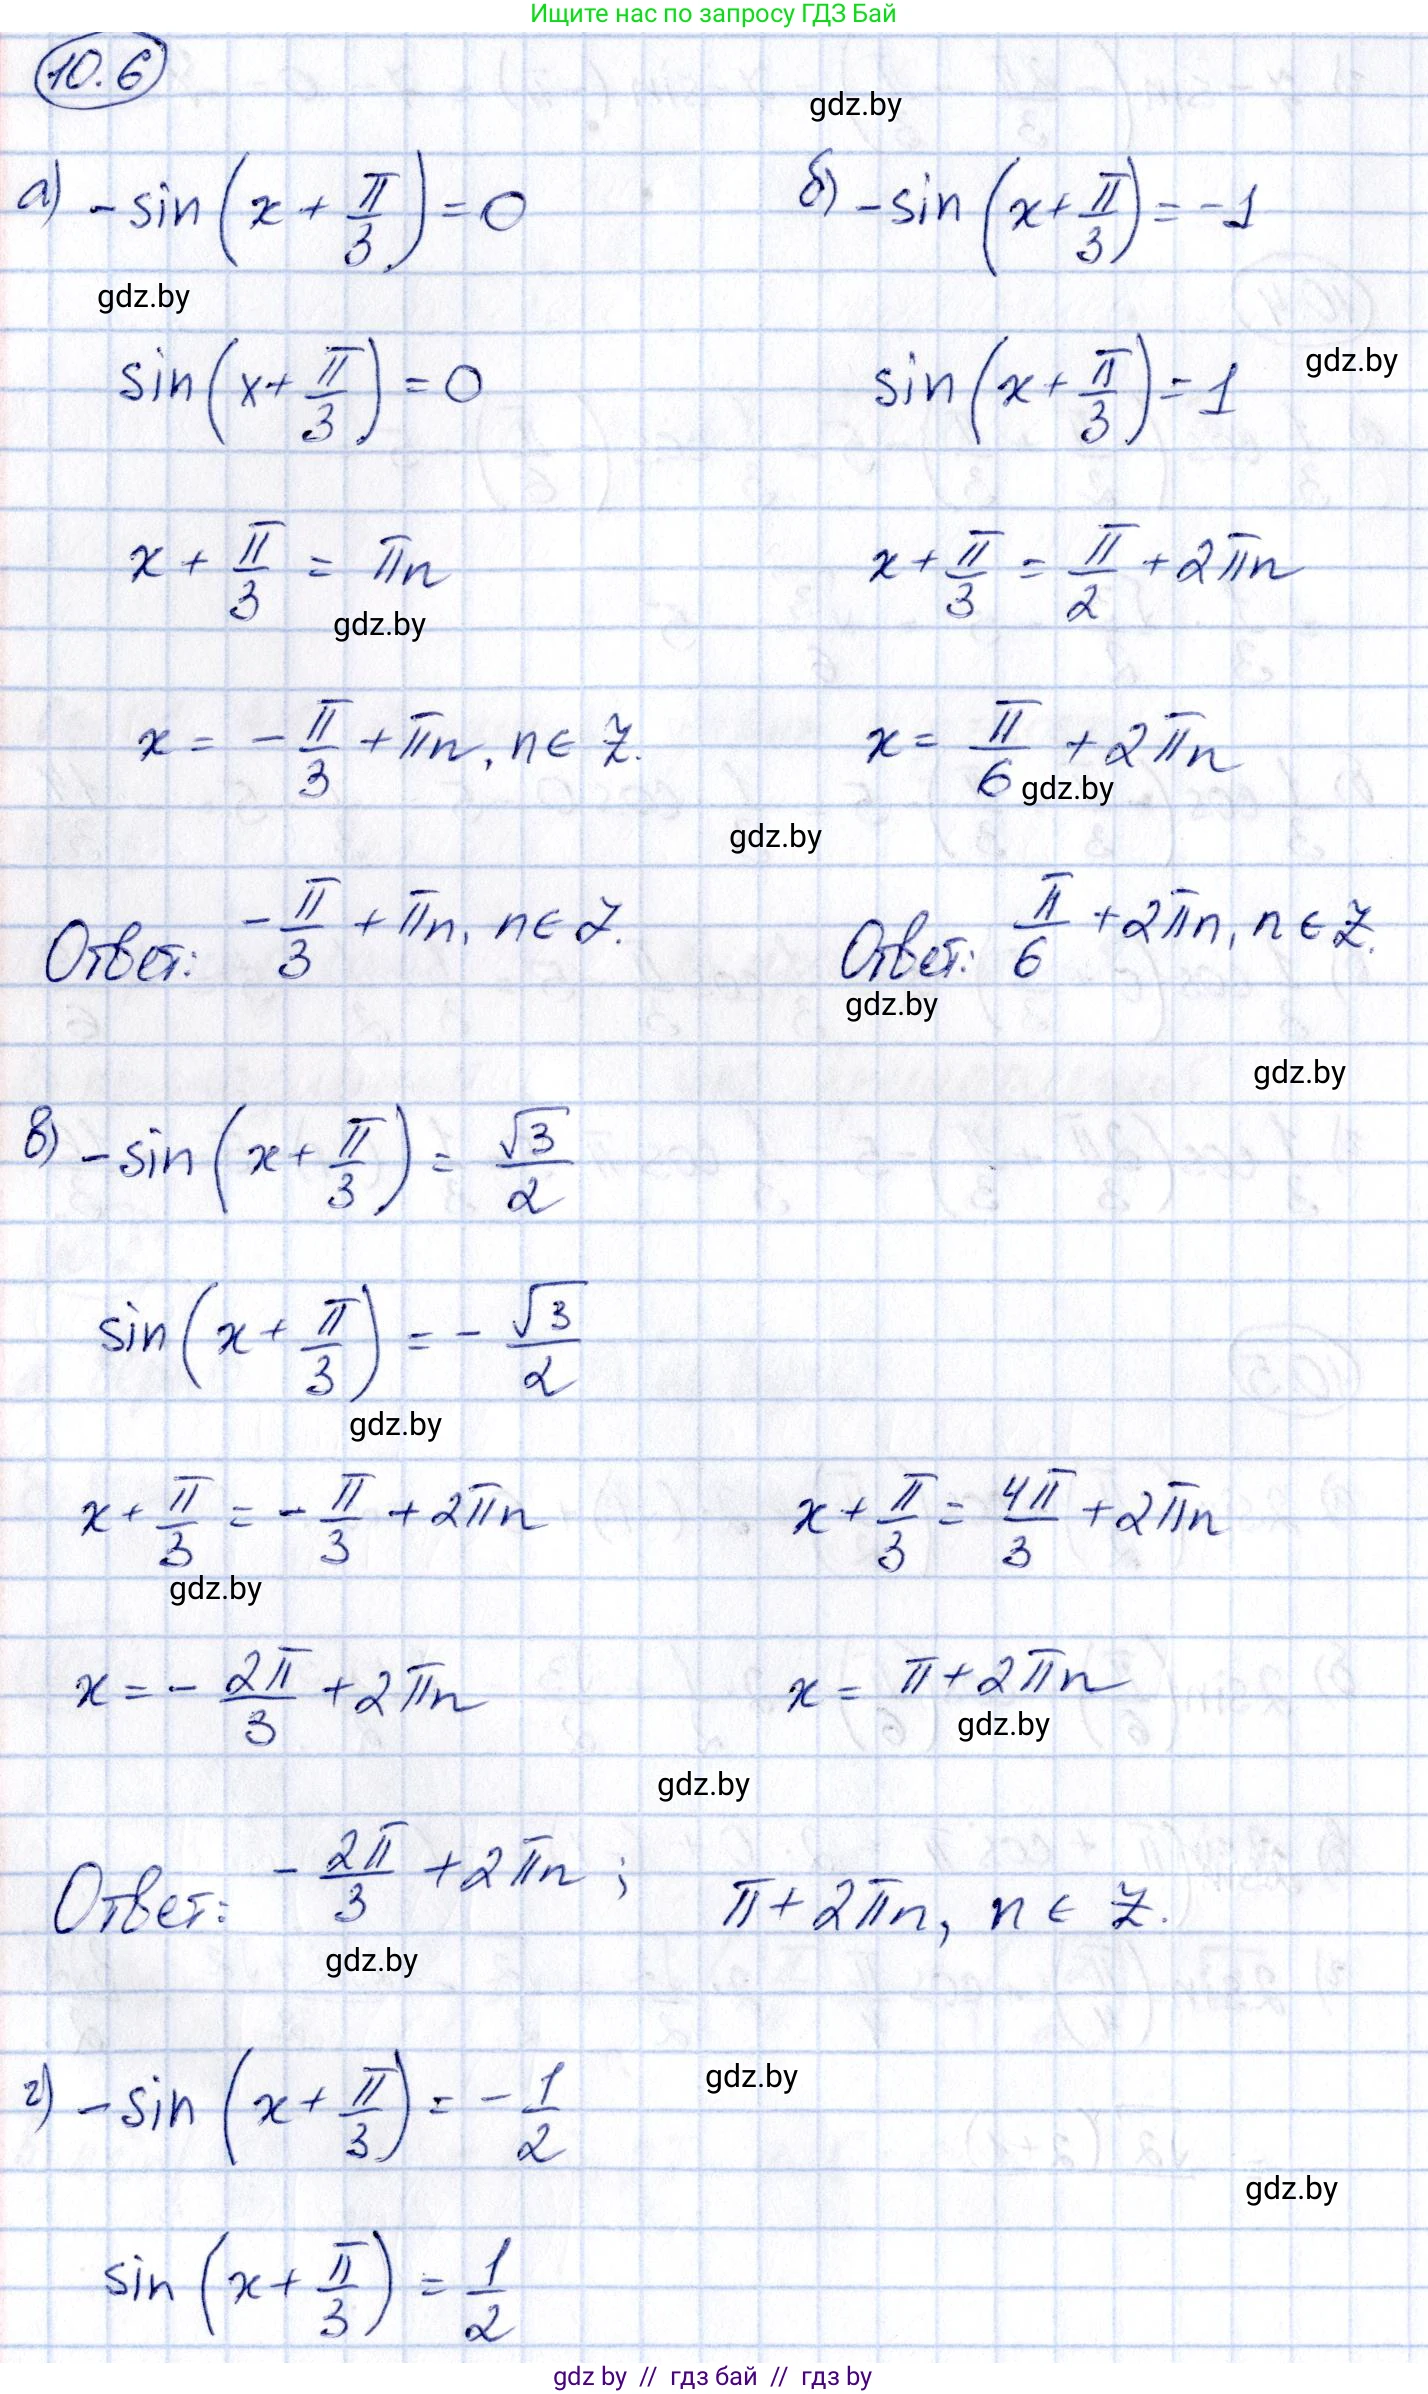 Ищите нас по запросу ГДЗ Бай
10.6
gdz.by
а) -sin(x + π/3) = 0
б) -sin(x + π/3) = -1
gdz.by
sin(x + π/3) = 0
sin(x + π/3) = 1
gdz.by
x + π/3 = πn
x + π/3 = π/2 + 2πn
gdz.by
x = -π/3 + πn, n ∈ Z.
x = π/6 + 2πn
gdz.by
gdz.by
Ответ: -π/3 + πn, n ∈ Z.
Ответ: π/6 + 2πn, n ∈ Z.
gdz.by
gdz.by
в) -sin(x + π/3) = √3/2
sin(x + π/3) = -√3/2
gdz.by
x + π/3 = -π/3 + 2πn
x + π/3 = 4π/3 + 2πn
gdz.by
x = -2π/3 + 2πn
x = π + 2πn
gdz.by
gdz.by
Ответ: -2π/3 + 2πn; π + 2πn, n ∈ Z.
gdz.by
г) -sin(x + π/3) = -1/2
gdz.by
gdz.by
sin(x + π/3) = 1/2
gdz by // гдз бай // гдз by